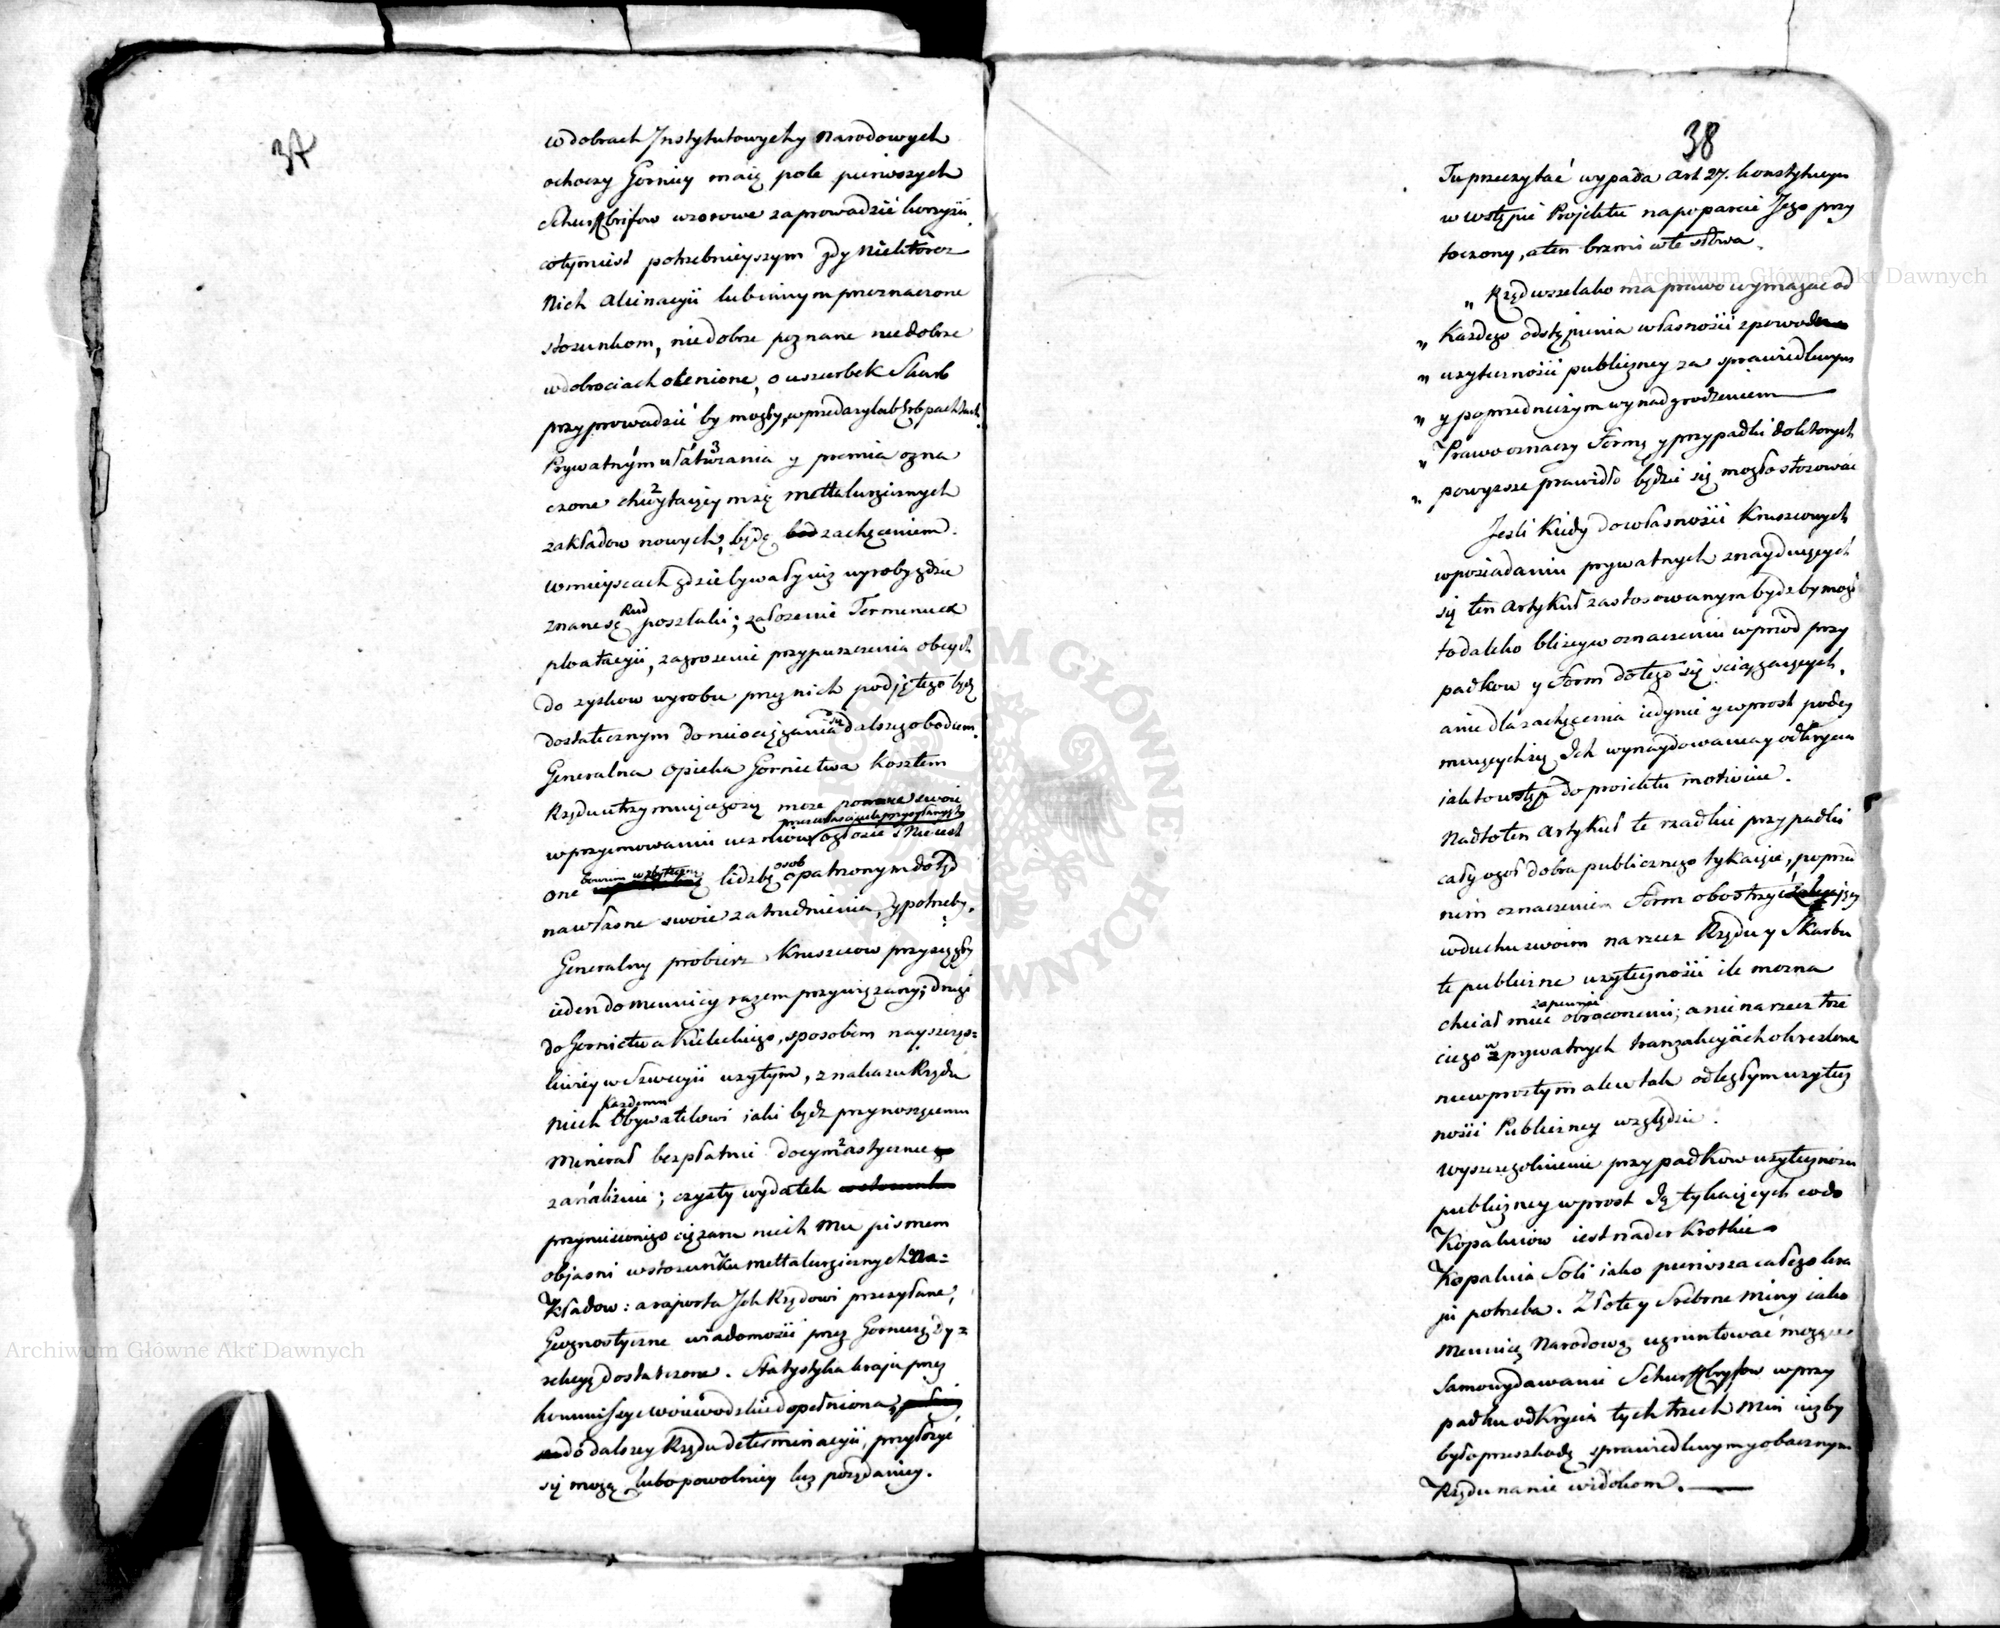 37
w dobrach Instytutowych y Narodowych
ochoczy Gornicy maią pole pierwszych
Schurffbrifow wzorowe zaprowadzić korzyści.
cotymiest potrzebnieyszym gdy Niektóre z
Nich Alienacyii lub innym przeznaczone
stosunkom, niedobrze poznane niedobrze
w dobrociach ocenione, o uszczerbek Skarb
przyprowadzić by mogły, w przedazy lub Erbpachtach.
Prywatnym ułátwzania y premia ozna
czone chwytaiącym się mettalurgicznych
zakładow nowych, będą zachęceniem.
w mieyscach gdzie bywały iuz wyroby gdzie
znane są Rud poszlaki; założenie Termenu ex
ploatacyii, zagrozenie przypuszczenia obcych
do zyskow wyrobu przez nich podiętego będz
dostatecznym do nieociągania się dalszego bodzcem.
Generalna Opieka Gornictwa kosztem
Rządu utrzymuiącego się moze swoie
w przyimowaniu uczniów ogłosić Nie iest
one liczbą osob opatrzonym dotąd
na własne swoie zatrudnienia, y potrzeby.
Generalny probierz Kruszcow przysięgły
ieden do Mennicy razem przywiązany; drugi
do Gornictwa Kieleckiego, sposobem nayszczęs=
liwiey w Szwecyii uzytym, z nakazu Rządu
Niech Kazdemu Obywatelowi iaki bądz przynoszącemu
Minerał bezpłatnie docymastycznie
zanalizuie; czysty wydatek
przyniesionego ciężaru niech Mu pismem
obiasni w stosunku mettalurgicznych Na=
Kładow: a raporta Ich Rządowi przesyłane,
Geognostyczne wiadomości przez Gorniczą Dy=
rekcyą dostarczone. Statystyka kraiu przez
kommissye woiewodzkie dopełniona,
do dalszey Rządu determinacyii, przyłożyć
się mogą lubo powolniey lecz porządniey.
38
Tu przeczytać wypada Art 27. konstytucyi
w wstępie Projektu na poparcie Jego przy
toczony, a ten brzmi w te słowa.
„ Rząd wszelako ma prawo wymagać od
„ Każdego odstąpienia własności z powodu
„ uzyteczności publiczney za sprawiedliwym
„ y poprzedniczym wynadgrodzeniem
„ Prawo oznaczy Formę y przypadki do ktorych
„ powyższe prawidło będzie się mogło stosować
Jesli Kiedy do własności Kruszcowych
w posiadaniu prywatnych znayduiących
się ten Artykuł zastosowanym bydz by mogł
to daleko bliżey w oznaczeniu wprzód przy
padkow y Form do tego się sciągaiących,
a nie dla zachęcenia iedynie y wprost podey
muiących się Ich wynaydowania y odkrycia
iak to wstęp do proiektu motivuie.
Nadto ten Artykuł te rzadkie przypadki
cały ogoł dobra publicznego tykaiące, poprzed
nim oznaczeniem Form obostrzyć
w duchu swoim na rzecz Rządu y Skarbu
te publiczne uzyteczności ile mozna
chciał mieć zapewnie obroconemi; a nie na rzecz trze
ciego w prywatnych tranzakcyiach okreslone
nie w prostym ale w tak odległym uzytecz
ności Publiczney względzie.
Wyszczegolnienie przypadkow uzyteczności
publiczney wprost Ją tykaiących co do
Kopalniow iest nader krotkie.
Kopalnia Soli iako pierwsza całego kra
iu potrzeba. Złote y Srebrne Miny iako
Mennicę Narodową ugruntować mogące
Samo wydawanie Schurffbryfow w przy
padku odkrycia tych trzech Min iużby
było przeszkodą sprawiedliwym y obacznym
Rządu na nie widokom.
Archiwum Główne Akt Dawnych
Archiwum Główne Akt Dawnych
ARCHIWUM GŁÓWNE AKT DAWNYCH